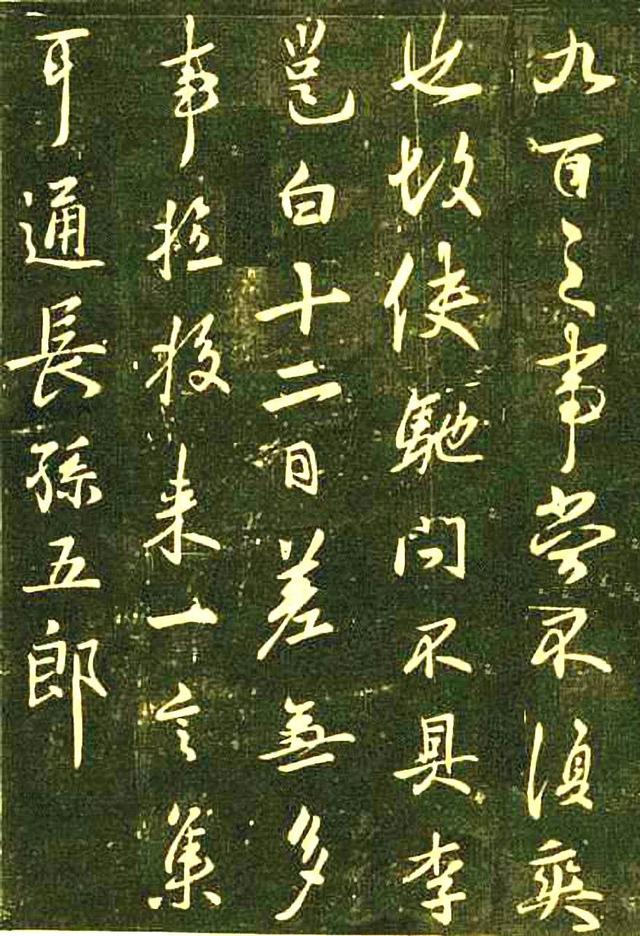 九百之事當不須爽
也故使馳問不具李
邕白十二日差無多
事來一言集
耳通長孫五郎